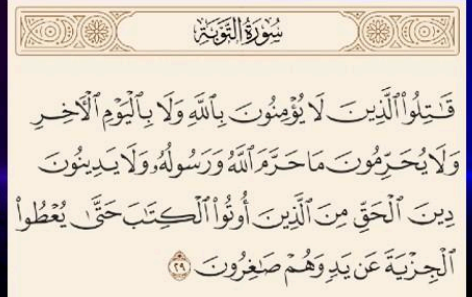 سُورَةُ التَّوْبَةِ
قَٰتِلُوا۟ ٱلَّذِينَ لَا يُؤْمِنُونَ بِٱللَّهِ وَلَا بِٱلْيَوْمِ ٱلْءَاخِرِ
وَلَا يُحَرِّمُونَ مَا حَرَّمَ ٱللَّهُ وَرَسُولُهُۥ وَلَا يَدِينُونَ
دِينَ ٱلْحَقِّ مِنَ ٱلَّذِينَ أُوتُوا۟ ٱلْكِتَٰبَ حَتَّىٰ يُعْطُوا۟
ٱلْجِزْيَةَ عَن يَدٍ وَهُمْ صَٰغِرُونَ ٢٩